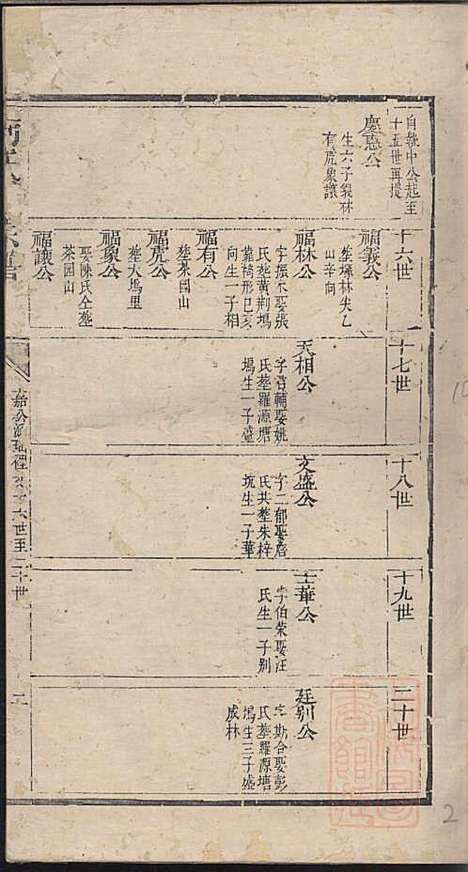 自執中公起至
十五世再提
慶惠公
生六子義林
有虎象讓
十六世
福義公
塟塚林尖乙
山辛向
福林公
字振木娶張
氏塟黄荆塢
靠椅形巳亥
向生一子相
福有公
塟茶园山
福虎公
塟大塢里
福象公
娶陳氏仝塟
茶园山
福讓公
十七世
天相公
字君輔娶姚
氏塟羅源塘
塢生一子盛
十八世
文盛公
字二郁娶詹
氏共塟朱梓
坑生一子華
十九世
士華公
字伯荣娶汪
氏生一子别
二十世
廷别公
字斯合娶彭
氏塟羅源塘
塢生三子盛
成林
十六世至二十世
2